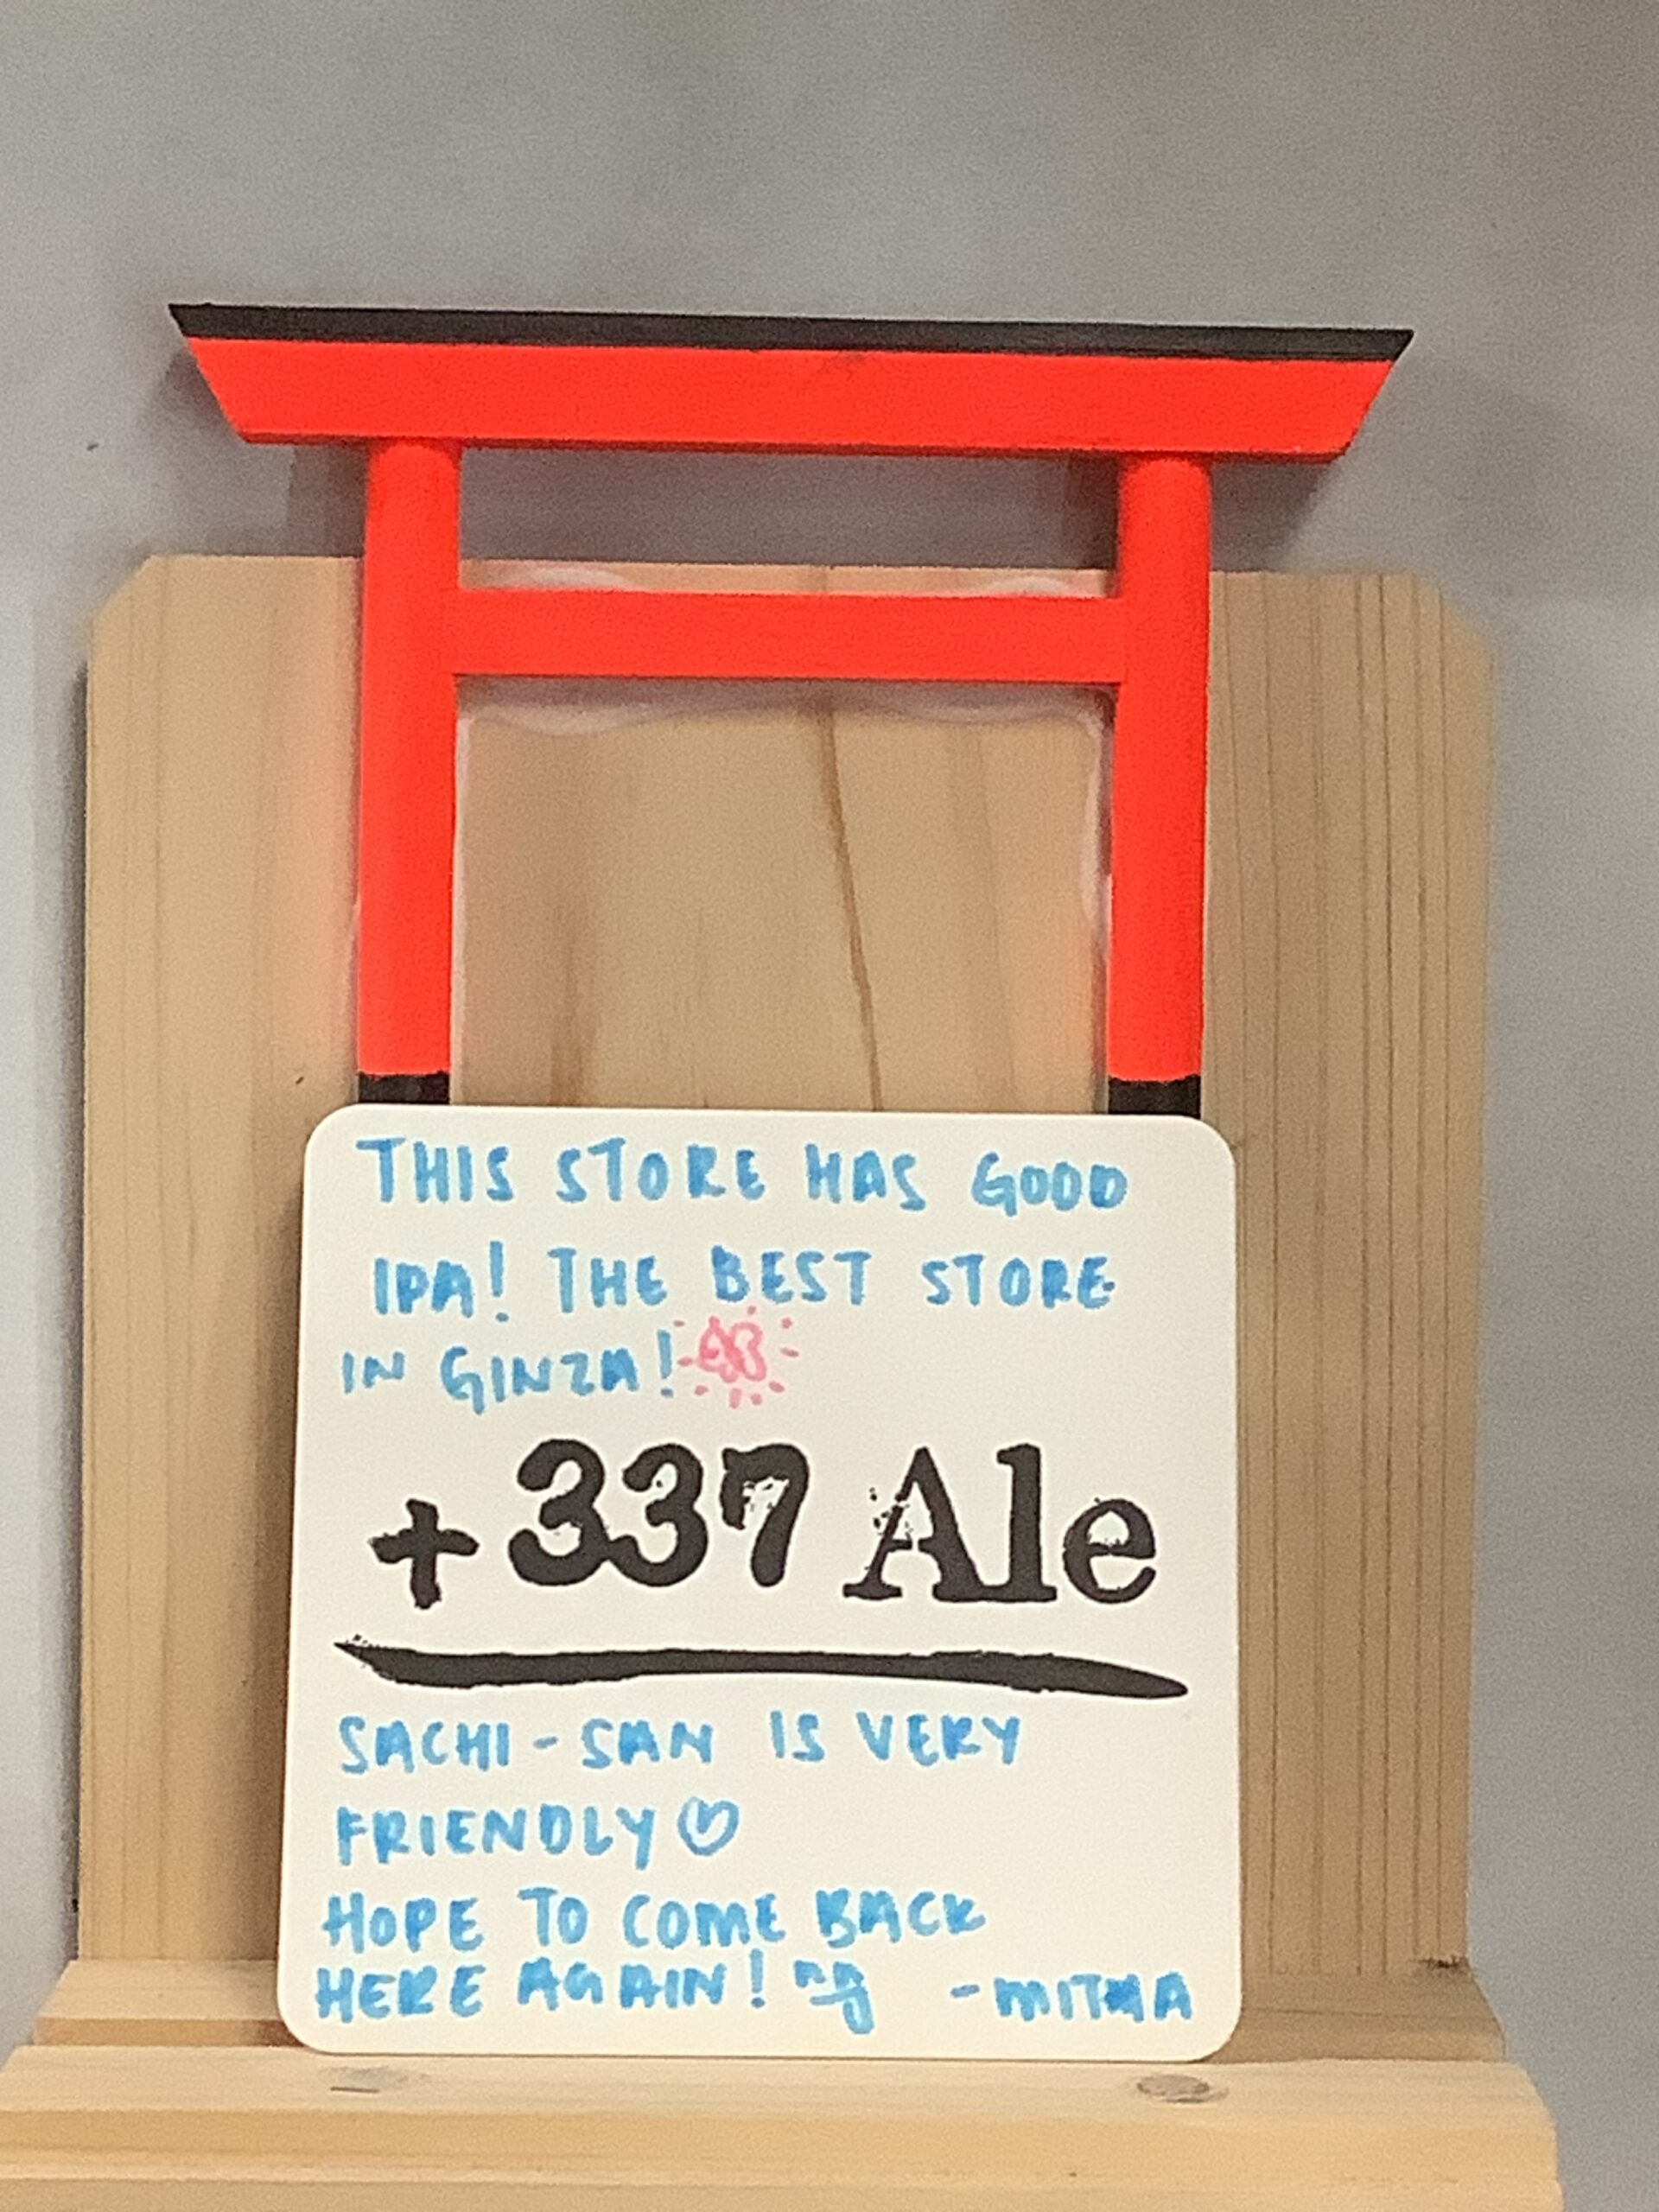 THIS STORE HAS GOOD
IPA! THE BEST STORE
IN GINZA!
+337 Ale
SACHI-SAN IS VERY
FRIENDLY♡
HOPE TO COME BACK
HERE AGAIN! -